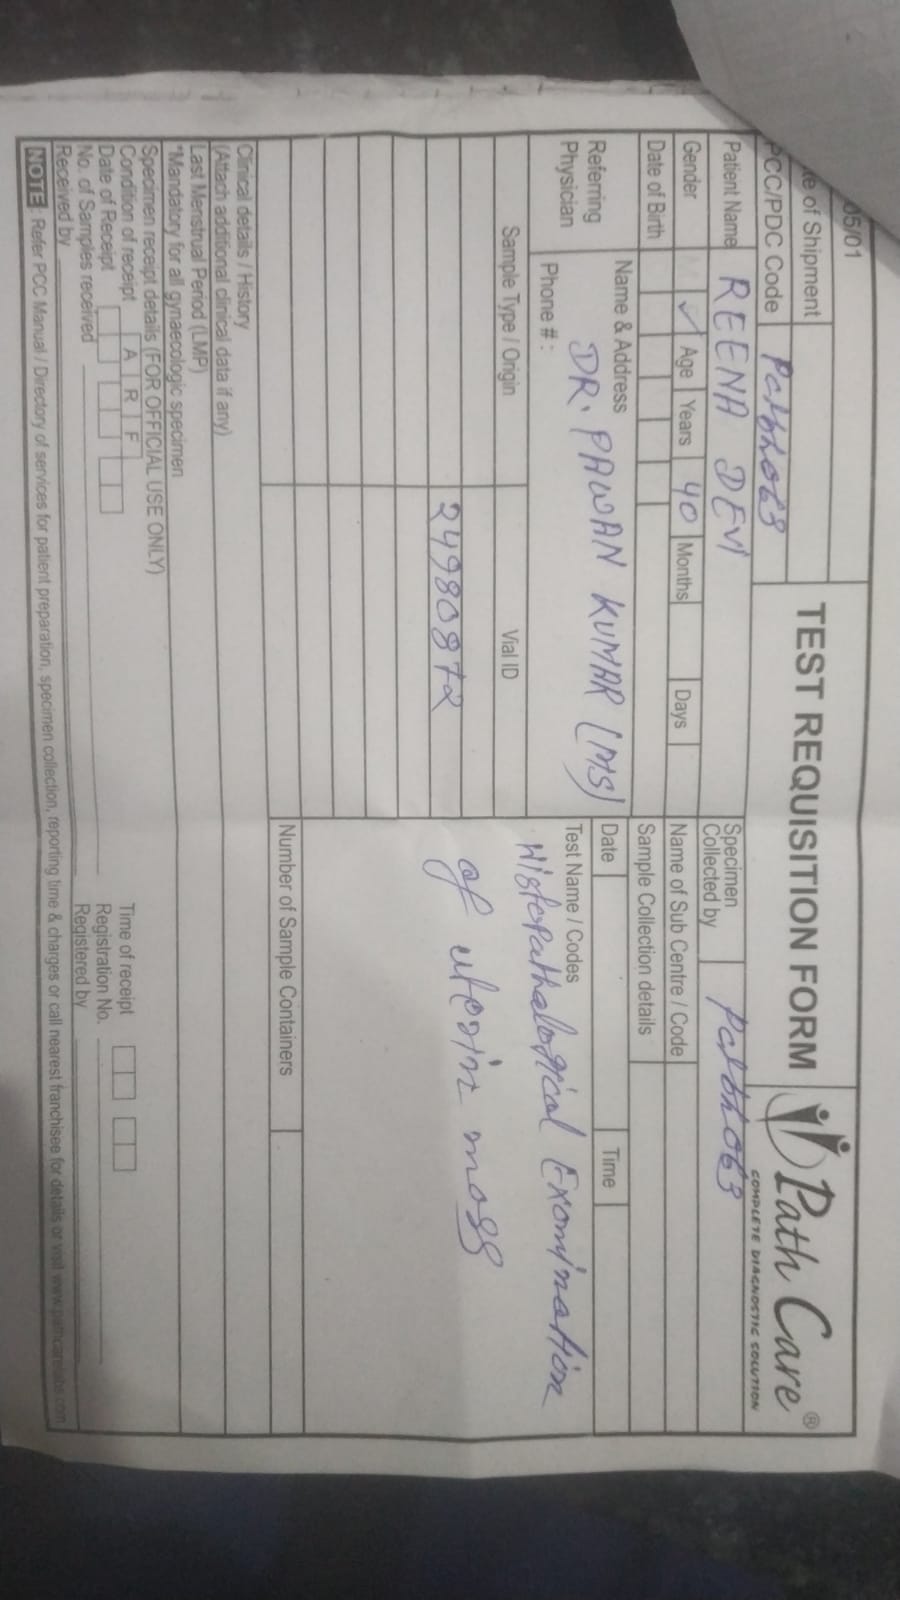 05/01
TEST REQUISITION FORM
Path Care®
COMPLETE DIAGNOSTIC SOLUTION
te of Shipment
PCC/PDC Code
Patient Name REENA DEVI
Gender Age Years 40 Months Days
Date of Birth
Referring Physician
Name & Address DR. PAWAN KUMAR (MS)
Phone # :
Specimen Collected by
Name of Sub Centre / Code
Sample Collection details
Date Time
Sample Type / Origin Vial ID
24980872
Test Name / Codes
Histopathological Examination
of uterine mass
Number of Sample Containers
Clinical details / History
(Attach additional clinical data if any)
Last Menstrual Period (LMP)
*Mandatory for all gynaecologic specimen
Specimen receipt details (FOR OFFICIAL USE ONLY)
Condition of receipt A R F Time of receipt
Date of Receipt Registration No.
No. of Samples received Registered by
Received by
NOTE : Refer PCC Manual / Directory of services for patient preparation, specimen collection, reporting time & charges or call nearest franchisee for details or visit www.pathcarelabs.com